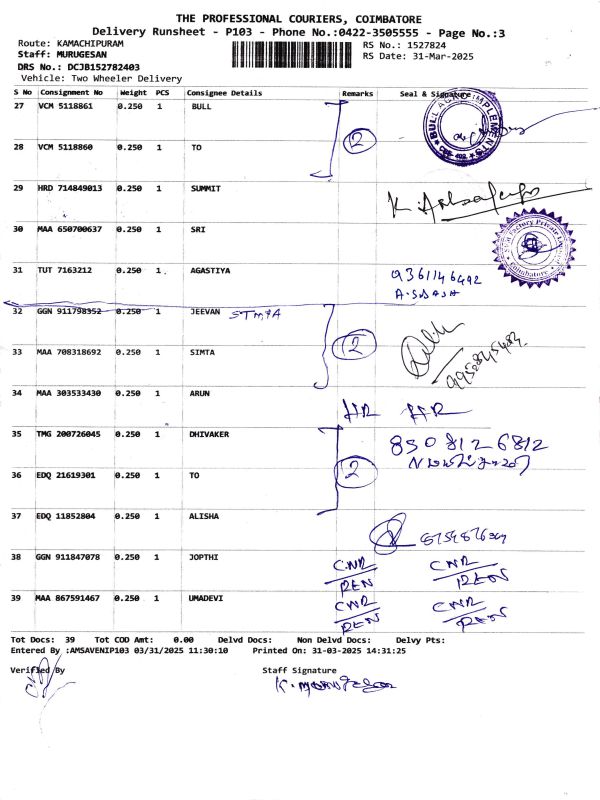 THE PROFESSIONAL COURIERS, COIMBATORE
Delivery Runsheet - P103 - Phone No.:0422-3505555 - Page No.:3
Route: KAMACHIPURAM RS No.: 1527824
Staff: MURUGESAN RS Date: 31-Mar-2025
DRS No.: DCJB152782403
Vehicle: Two Wheeler Delivery
S No Consignment No Weight PCS Consignee Details Remarks Seal & Signature
27 VCM 5118861 0.250 1 BULL
2
28 VCM 5118860 0.250 1 TO
29 HRD 714849013 0.250 1 SUMMIT
30 MAA 650700637 0.250 1 SRI
31 TUT 7163212 0.250 1 AGASTIYA 9361146492
32 GGN 911798352 0.250 1 JEEVAN
33 MAA 708318692 0.250 1 SIMTA 2
34 MAA 303533430 0.250 1 ARUN
35 TMG 200726045 0.250 1 DHIVAKER 8508126812
2
36 EDQ 21619301 0.250 1 TO
37 EDQ 11852804 0.250 1 ALISHA
38 GGN 911847078 0.250 1 JOPTHI
39 MAA 867591467 0.250 1 UMADEVI
Tot Docs: 39 Tot COD Amt: 0.00 Delvd Docs: Non Delvd Docs: Delvy Pts:
Entered By :AMSAVENIP103 03/31/2025 11:30:10 Printed On: 31-03-2025 14:31:25
Verified By Staff Signature